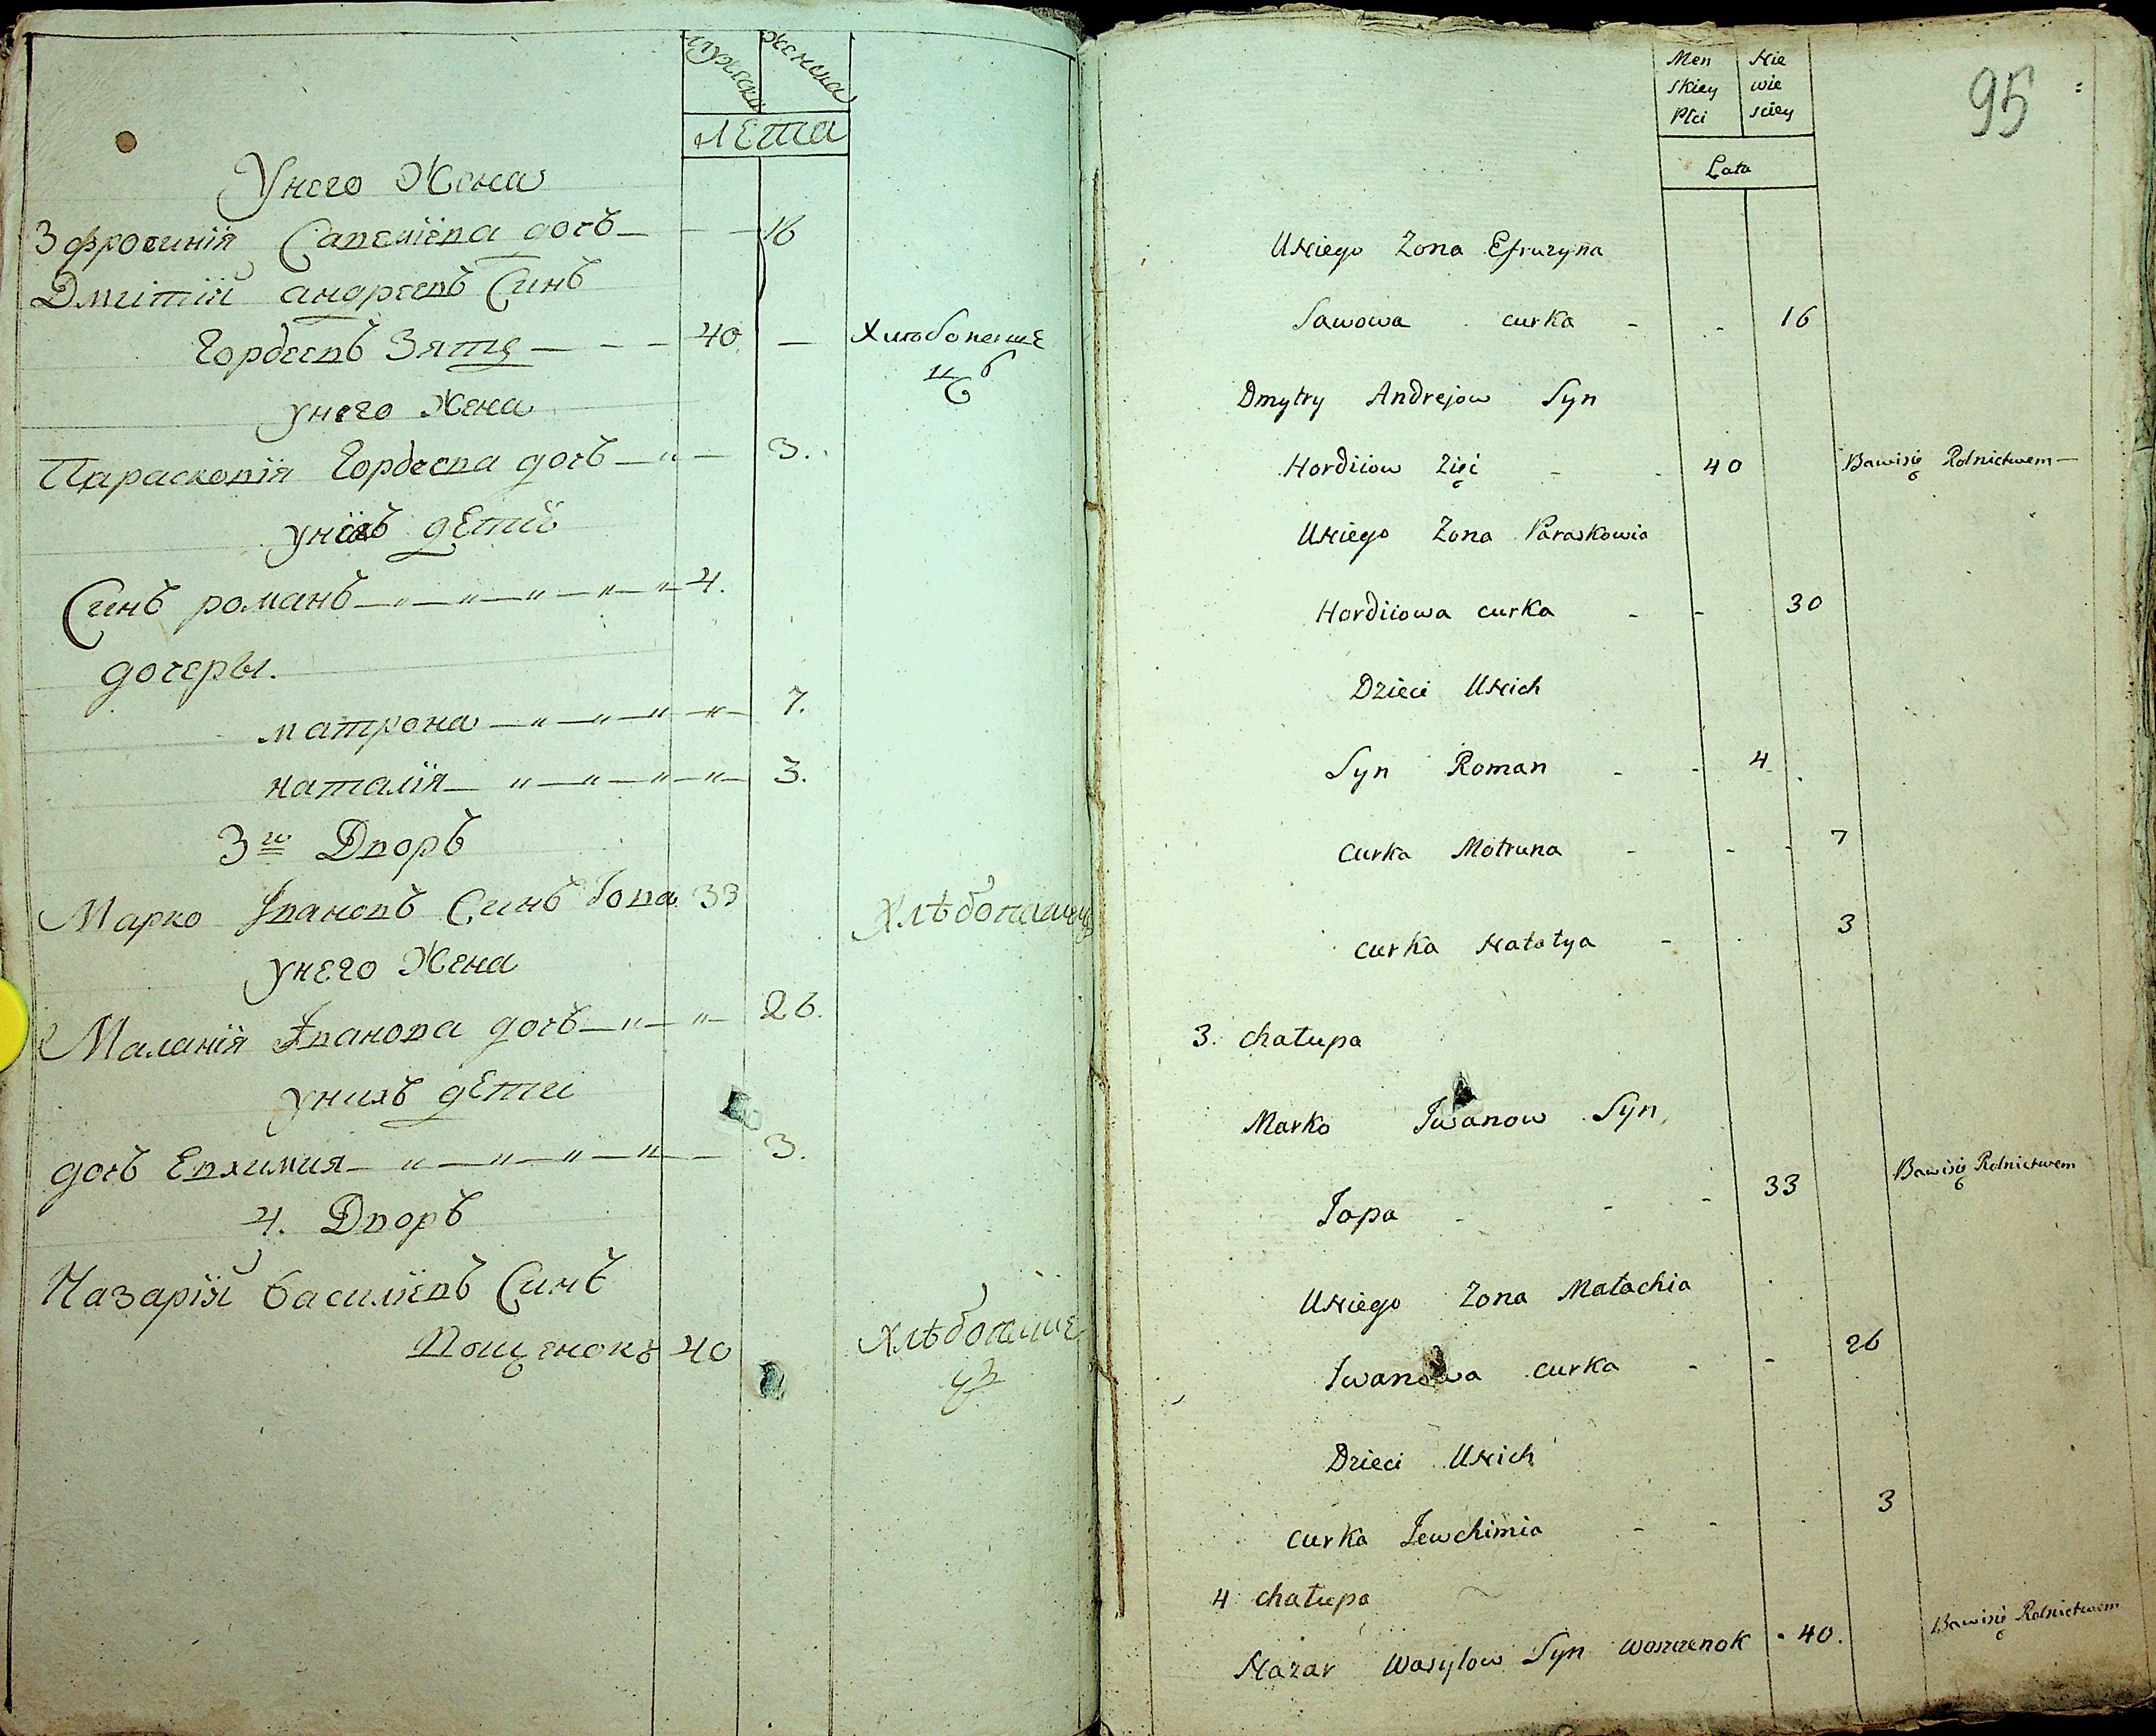 мужеска женска
лета
Унего Жена
Зфросинія Савеліева дочъ — — — 16
Дмитій андреевъ Синъ
Гордеевъ Зять — — — 40 — Хлюбопаше
цъ
унего Жена
Параскопія Гордеева дочъ — " — 3.
унихъ дети
Синъ романъ — " — " — " — " — " — 4.
дочеры.
матрона — " — " — " — " — 7.
наталія — " — " — " — " — 3.
3й Дворъ
Марко Івановъ Синъ Іопа 33 Хлѣбопашец
унего Жена
Маланія Іванова дочъ — " — " — 26.
унихъ дети
дочъ Евхимия — " — " — " — " — 3.
4. Дворъ
Назарій василіевъ Синъ
Вощенокъ 40 Хлѣбопаше
цъ
95
Men Nie
skiey wie
Płci sciey
Lata
Uniego Zona Efruzyna
Sawowa curka - - 16
Dmytry Andrejow Syn
Hordiiow Zięć - - 40 Bawisię Rolnictwem —
Uniego Zona Paraskowia
Hordiiowa curka - - 30
Dzieci Unich
Syn Roman - - 4
Curka Motruna - - - 7
curka Natałya - - 3
3. chałupa
Marko Iwanow Syn
Iopa - - - 33 Bawisię Rolnictwem
Uniego Zona Małachia
Iwanowa curka - - 26
Dzieci Unich
curka Iewchimia - - 3
4 chałupa
Nazar Wasylow Syn woszczenok - 40. Bawisię Rolnictwem